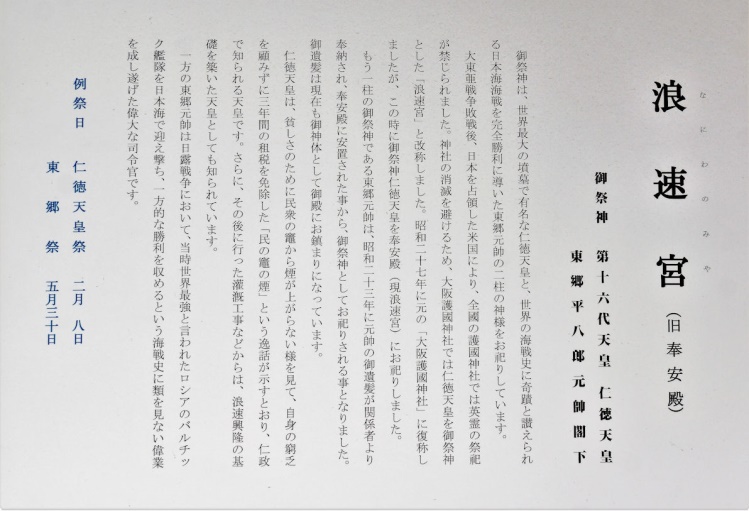 なにわのみや
浪速宮（旧奉安殿）
御祭神　第十六代天皇　仁徳天皇
東郷平八郎元帥閣下
御祭神は、世界最大の墳墓で有名な仁徳天皇と、世界の海戦史に奇蹟と讃えられ
る日本海海戦を完全勝利に導いた東郷元帥の二柱の神様をお祀りしています。
大東亜戦争敗戦後、日本を占領した米国により、全國の護國神社では英霊の祭祀
が禁じられました。神社の消滅を避けるため、大阪護國神社では仁徳天皇を御祭神
とした「浪速宮」と改称しました。昭和二十七年に元の「大阪護國神社」に復称し
ましたが、この時に御祭神仁徳天皇を奉安殿（現浪速宮）にお祀りしました。
もう一柱の御祭神である東郷元帥は、昭和二十三年に元帥の御遺髪が関係者より
奉納され、奉安殿に安置された事から、御祭神としてお祀りされる事となりました。
御遺髪は現在も御神体として御殿にお鎮まりになっています。
仁徳天皇は、貧しさのために民衆の竈から煙が上がらない様を見て、自身の窮乏
を顧みずに三年間の租税を免除した「民の竈の煙」という逸話が示すとおり、仁政
で知られる天皇です。さらに、その後に行った灌漑工事などからは、浪速興隆の基
礎を築いた天皇としても知られています。
一方の東郷元帥は日露戦争において、当時世界最強と言われたロシアのバルチッ
ク艦隊を日本海で迎え撃ち、一方的な勝利を収めるという海戦史に類を見ない偉業
を成し遂げた偉大な司令官です。
例祭日　仁徳天皇祭　二月　八日
東郷祭　五月三十日